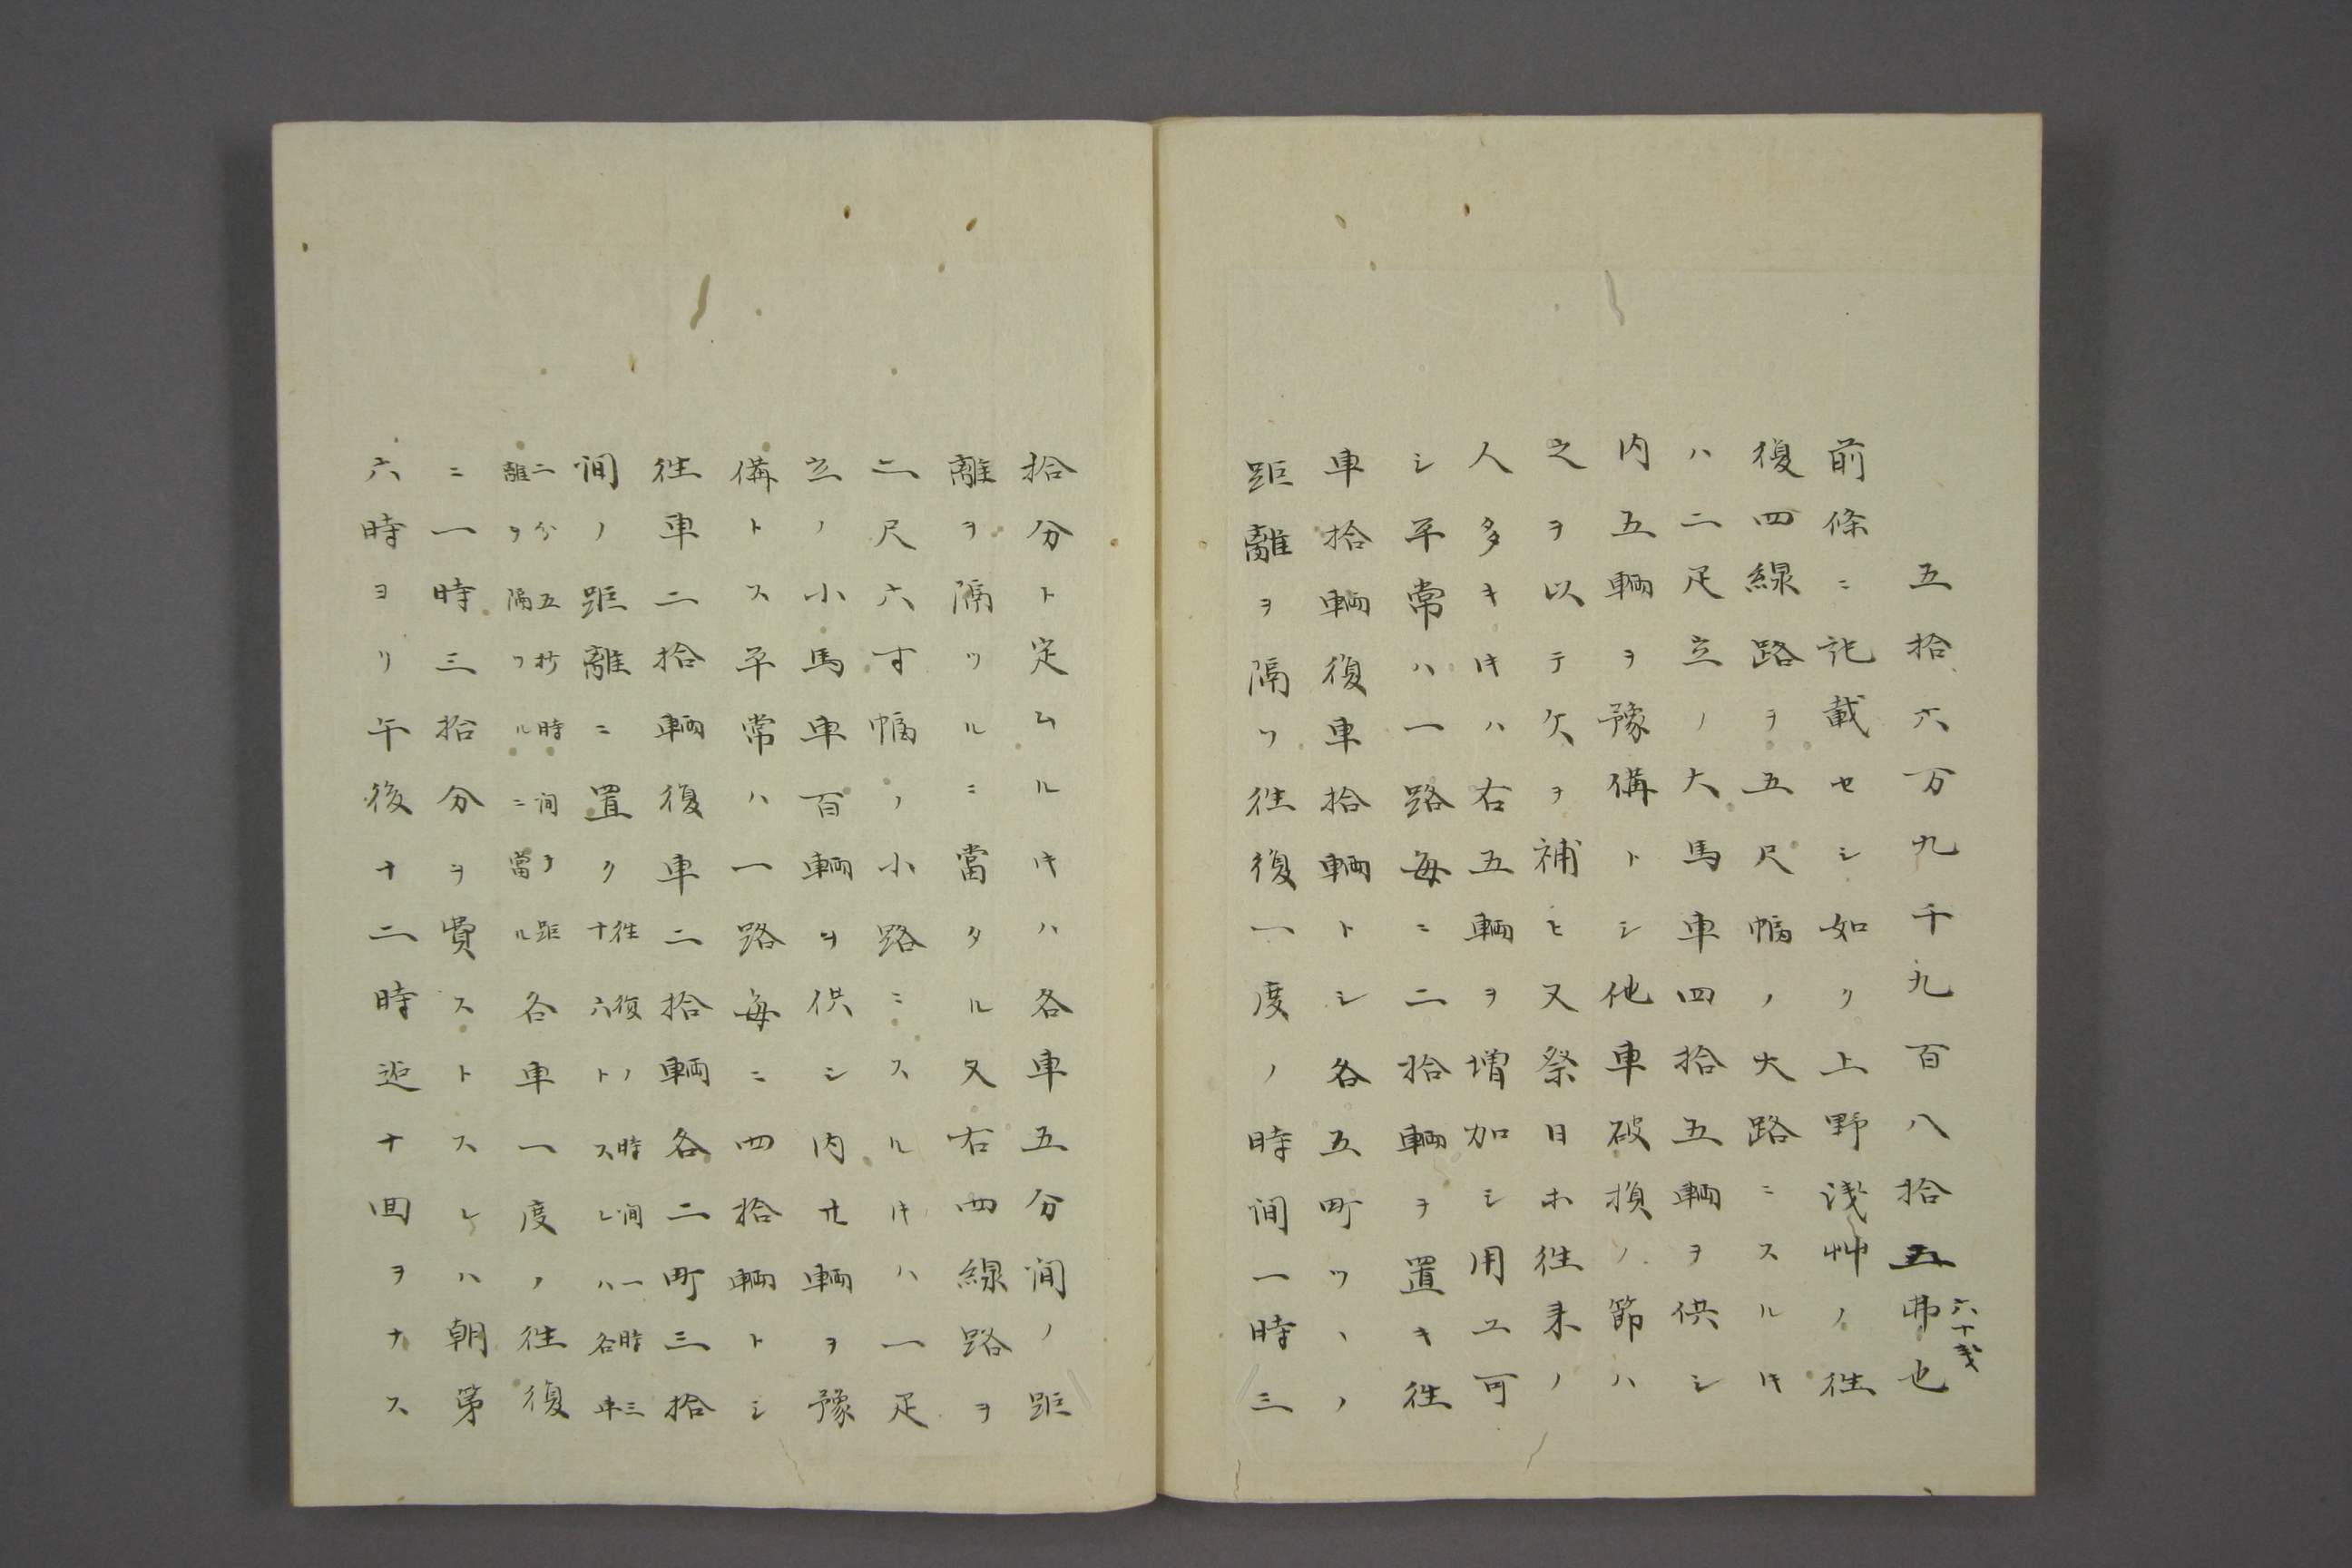 五拾六万九千九百八拾五弗也
六十戔
前條ニ記載セシ如ク上野浅艸ノ徃
復四線路ヲ五尺幅ノ大路ニスルキ
ハ二疋立ノ大馬車四拾五輌ヲ供シ
内五輌ヲ豫備トシ他車破損ノ節ハ
之ヲ以テ欠ヲ補ヒ又祭日ホ徃来ノ
人多キキハ右五輌ヲ増加シ用ユ可
シ平常ハ一路毎ニ二拾輌ヲ置キ徃
車拾輌復車拾輌トシ各五町ツヽノ
距離ヲ隔ツ徃復一度ノ時间一時三
拾分ト定ムルキハ各車五分间ノ距
離ヲ隔ツルニ當タル又右四線路ヲ
二尺六寸幅ノ小路ニスルキハ一疋
立ノ小馬車百輌ヲ供シ内廿輌ヲ豫
備トス平常ハ一路毎ニ四拾輌トシ
徃車二拾輌復車二拾輌各二町三拾
间ノ距離ニ置ク徃復ノ時间一時三
十六トスレハ各車
二分五秒時间ノ距
離ヲ隔ツルニ當ル各車一度ノ徃復
ニ一時三拾分ヲ費ストスレハ朝第
六時ヨリ午後十二時迄十回ヲナス